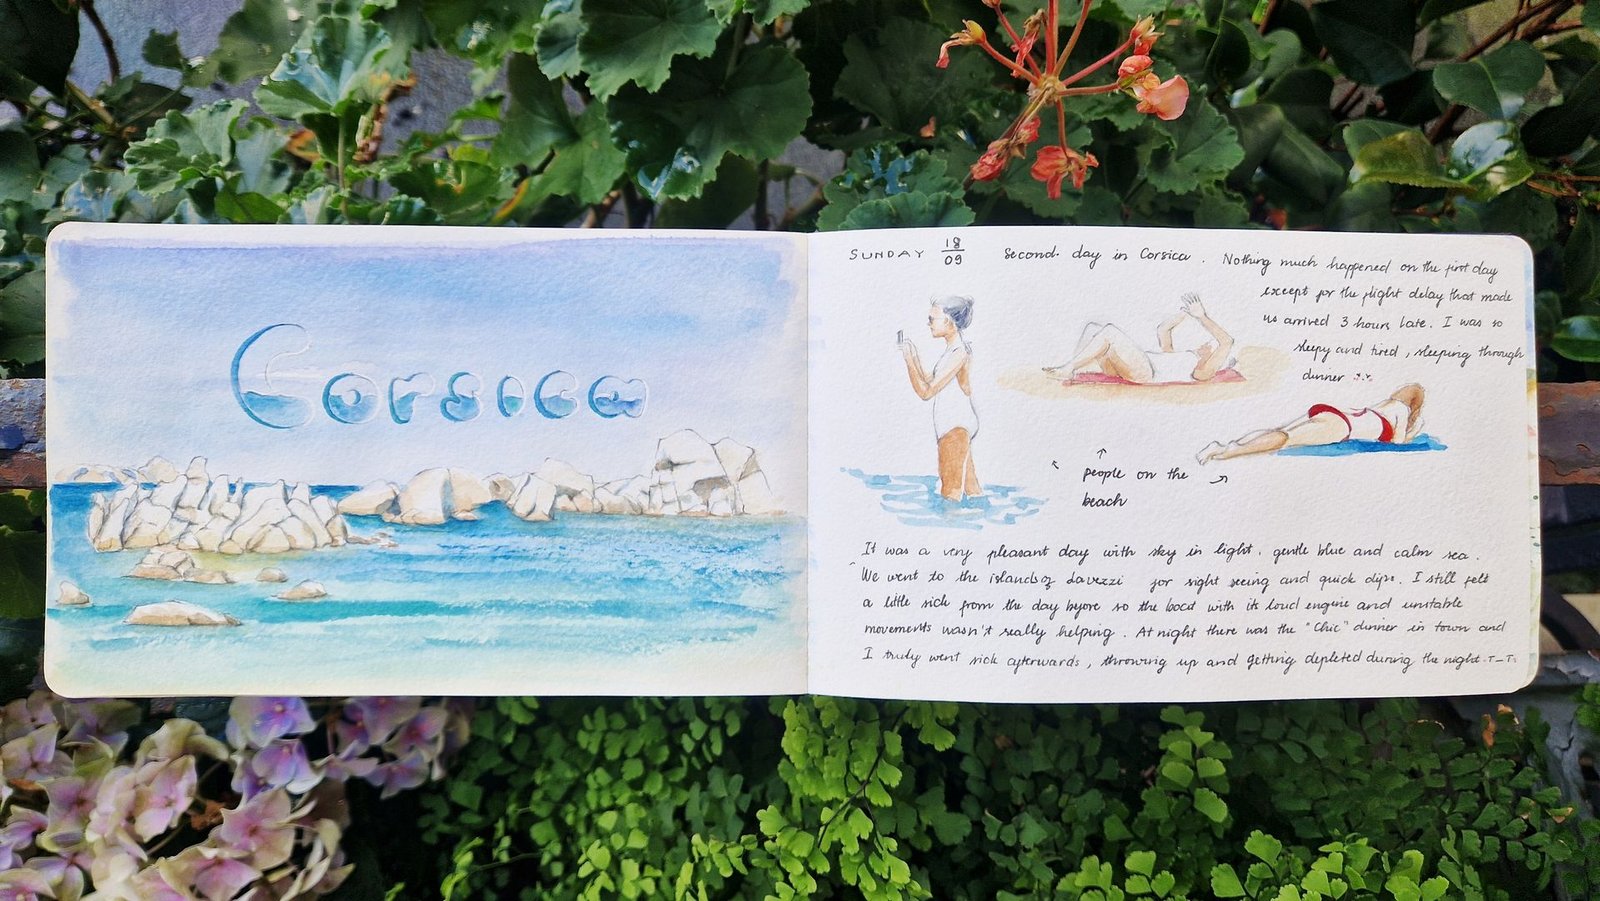 Corsica
SUNDAY 18/09
Second day in Corsica. Nothing much happened on the first day
except for the flight delay that made
us arrived 3 hours late. I was so
sleepy and tired, sleeping through
dinner
people on the
beach
It was a very pleasant day with sky in light, gentle blue and calm sea.
We went to the islands of Lavezzi for sight seeing and quick dips. I still felt
a little sick from the day before so the boat with its loud engine and unstable
movements wasn't really helping. At night there was the "Chic" dinner in town and
I truly went sick afterwards, throwing up and getting depleted during the night. T_T